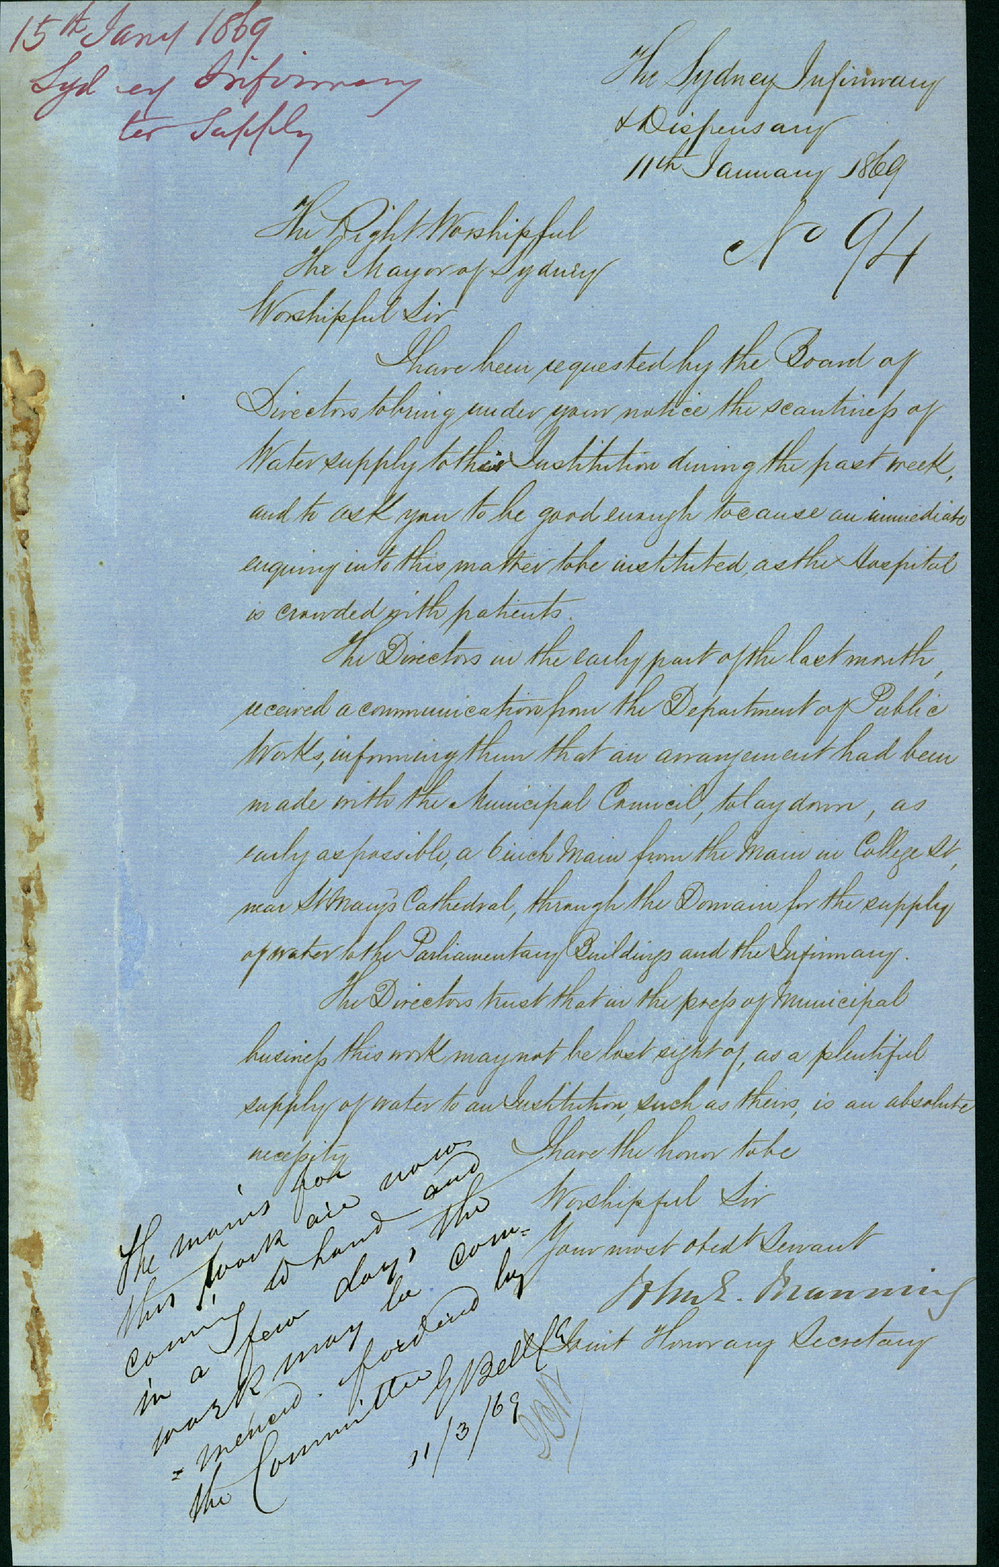 15th Jany 1869
Sydney Infirmary
ter Supply
The Sydney Infirmary
& Dispensary
11th January 1869
No 94
The Right Worshipful
The Mayor of Sydney
Worshipful Sir
I have been requested by the Board of
Directors to bring under your notice the scantiness of
Water supply to this Institution during the past week,
and to ask you to be good enough to cause an immediate
enquiry into this matter to be instituted, as the Hospital
is crowded with patients.
The Directors in the early part of the last month,
received a communication from the Department of Public
Works, informing them that an arrangement had been
made with the Municipal Council, to lay down, as
early as possible, a 6 inch Main from the Main in College St,
near St Mary's Cathedral, through the Domain for the supply
of water to the Parliamentary Buildings and the Infirmary.
The Directors trust that in the press of Municipal
business this work may not be lost sight of, as a plentiful
supply of water to an Institution, such as theirs, is an absolute
necessity
I have the honor to be
Worshipful Sir
Your most obedt Servant
John E. Manning
Joint Honorary Secretary
The mains for
this work are now
coming to hand and
in a few days the
work may be com=
=menced. fordered by
the Committee E Bell CE
11/3/69